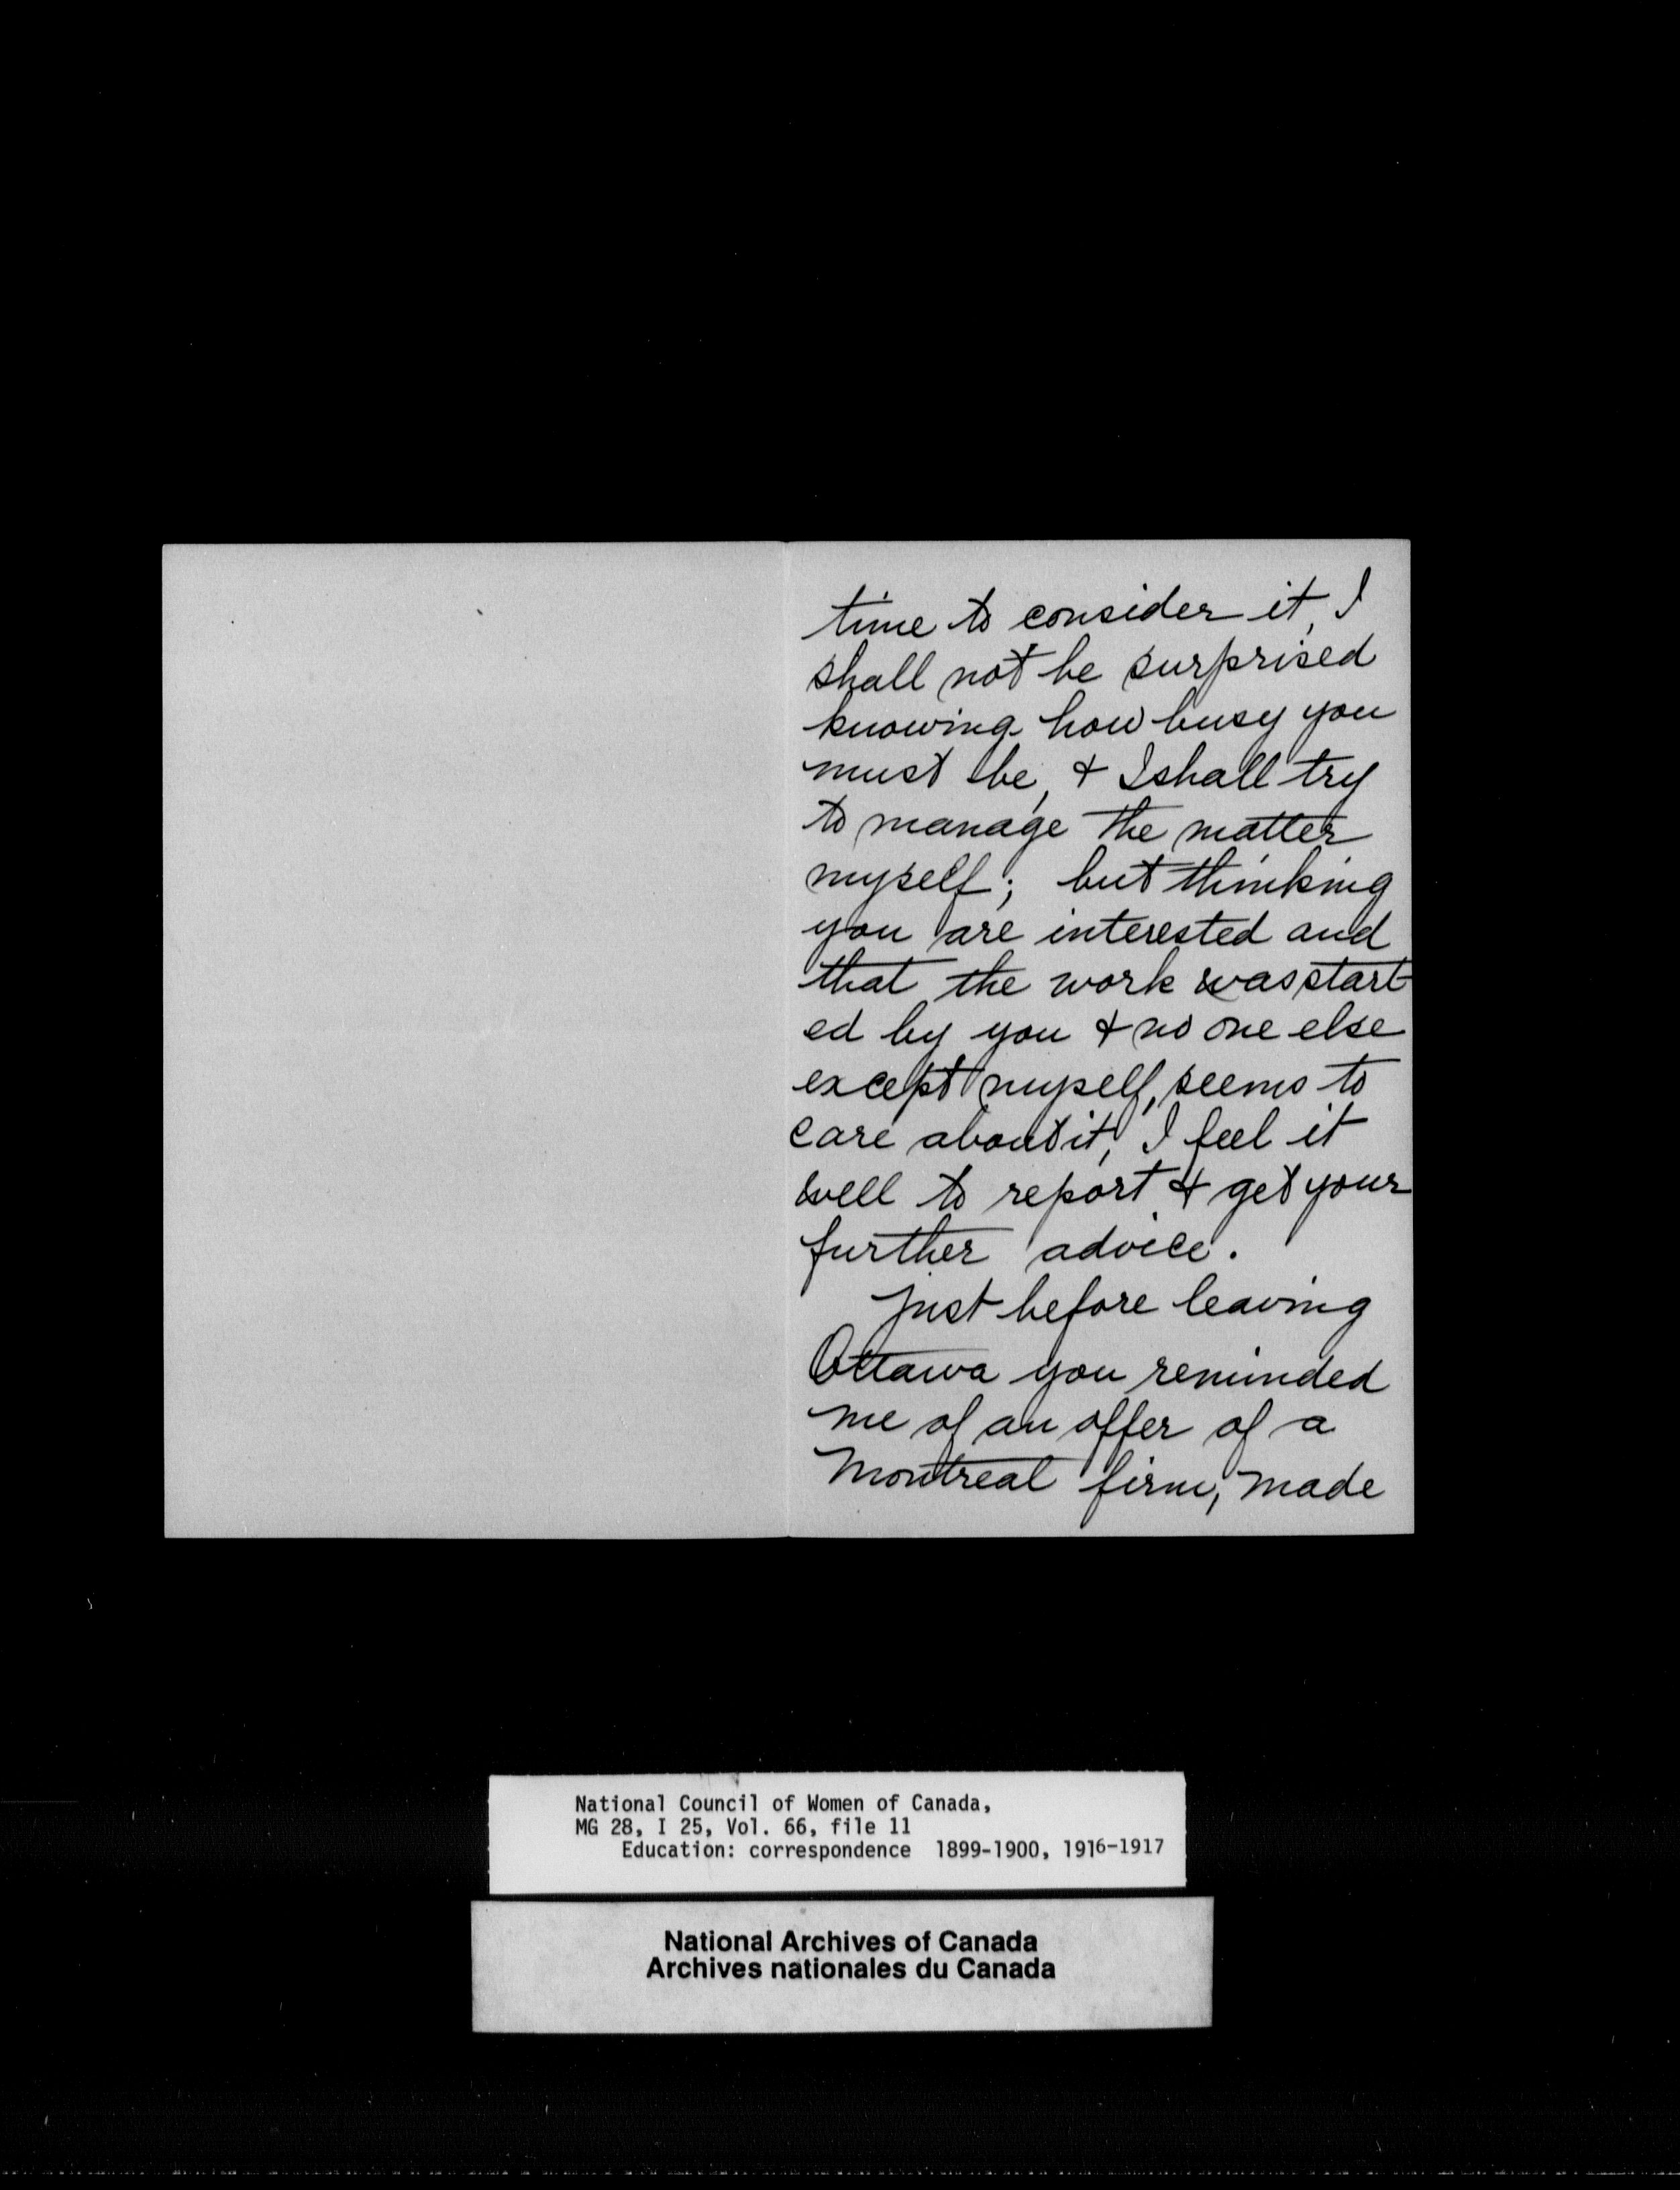 time to consider it, I
shall not be surprised
knowing how busy you
must be, & I shall try
to manage the matter
myself; but thinking
you are interested and
that the work was start
ed by you & no one else
except myself, seems to
care about it, I feel it
well to report & get your
further advice.
Just before leaving
Ottawa you reminded
me of an offer of a
Montreal firm, made
National Council of Women of Canada,
MG 28, I 25, Vol. 66, file 11
Education: correspondence 1899-1900, 1916-1917
National Archives of Canada
Archives nationales du Canada